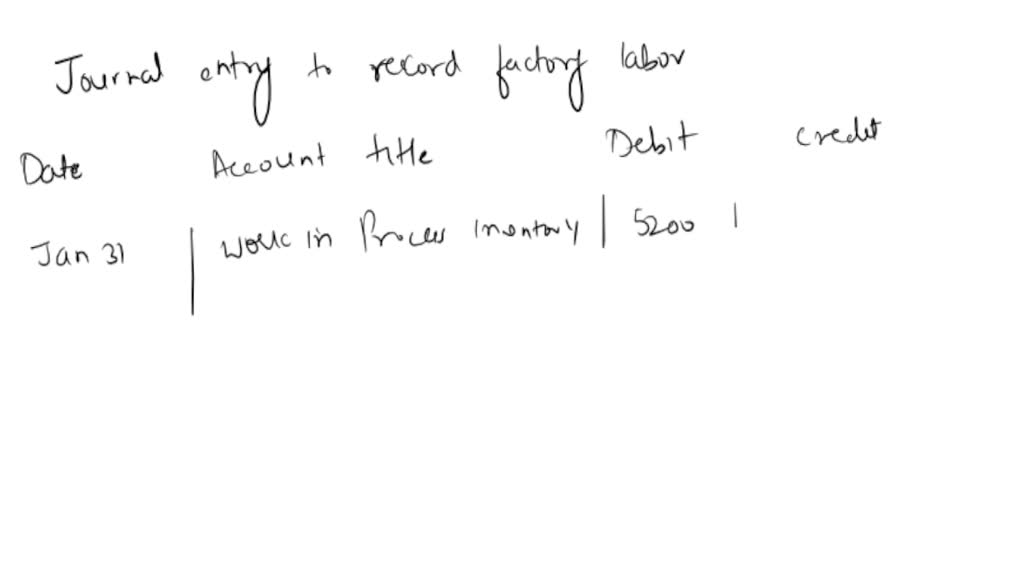 Journal entry to record factory labor
Date Account title Debit credit
Jan 31 | Work in Process Inventory | 5200 |